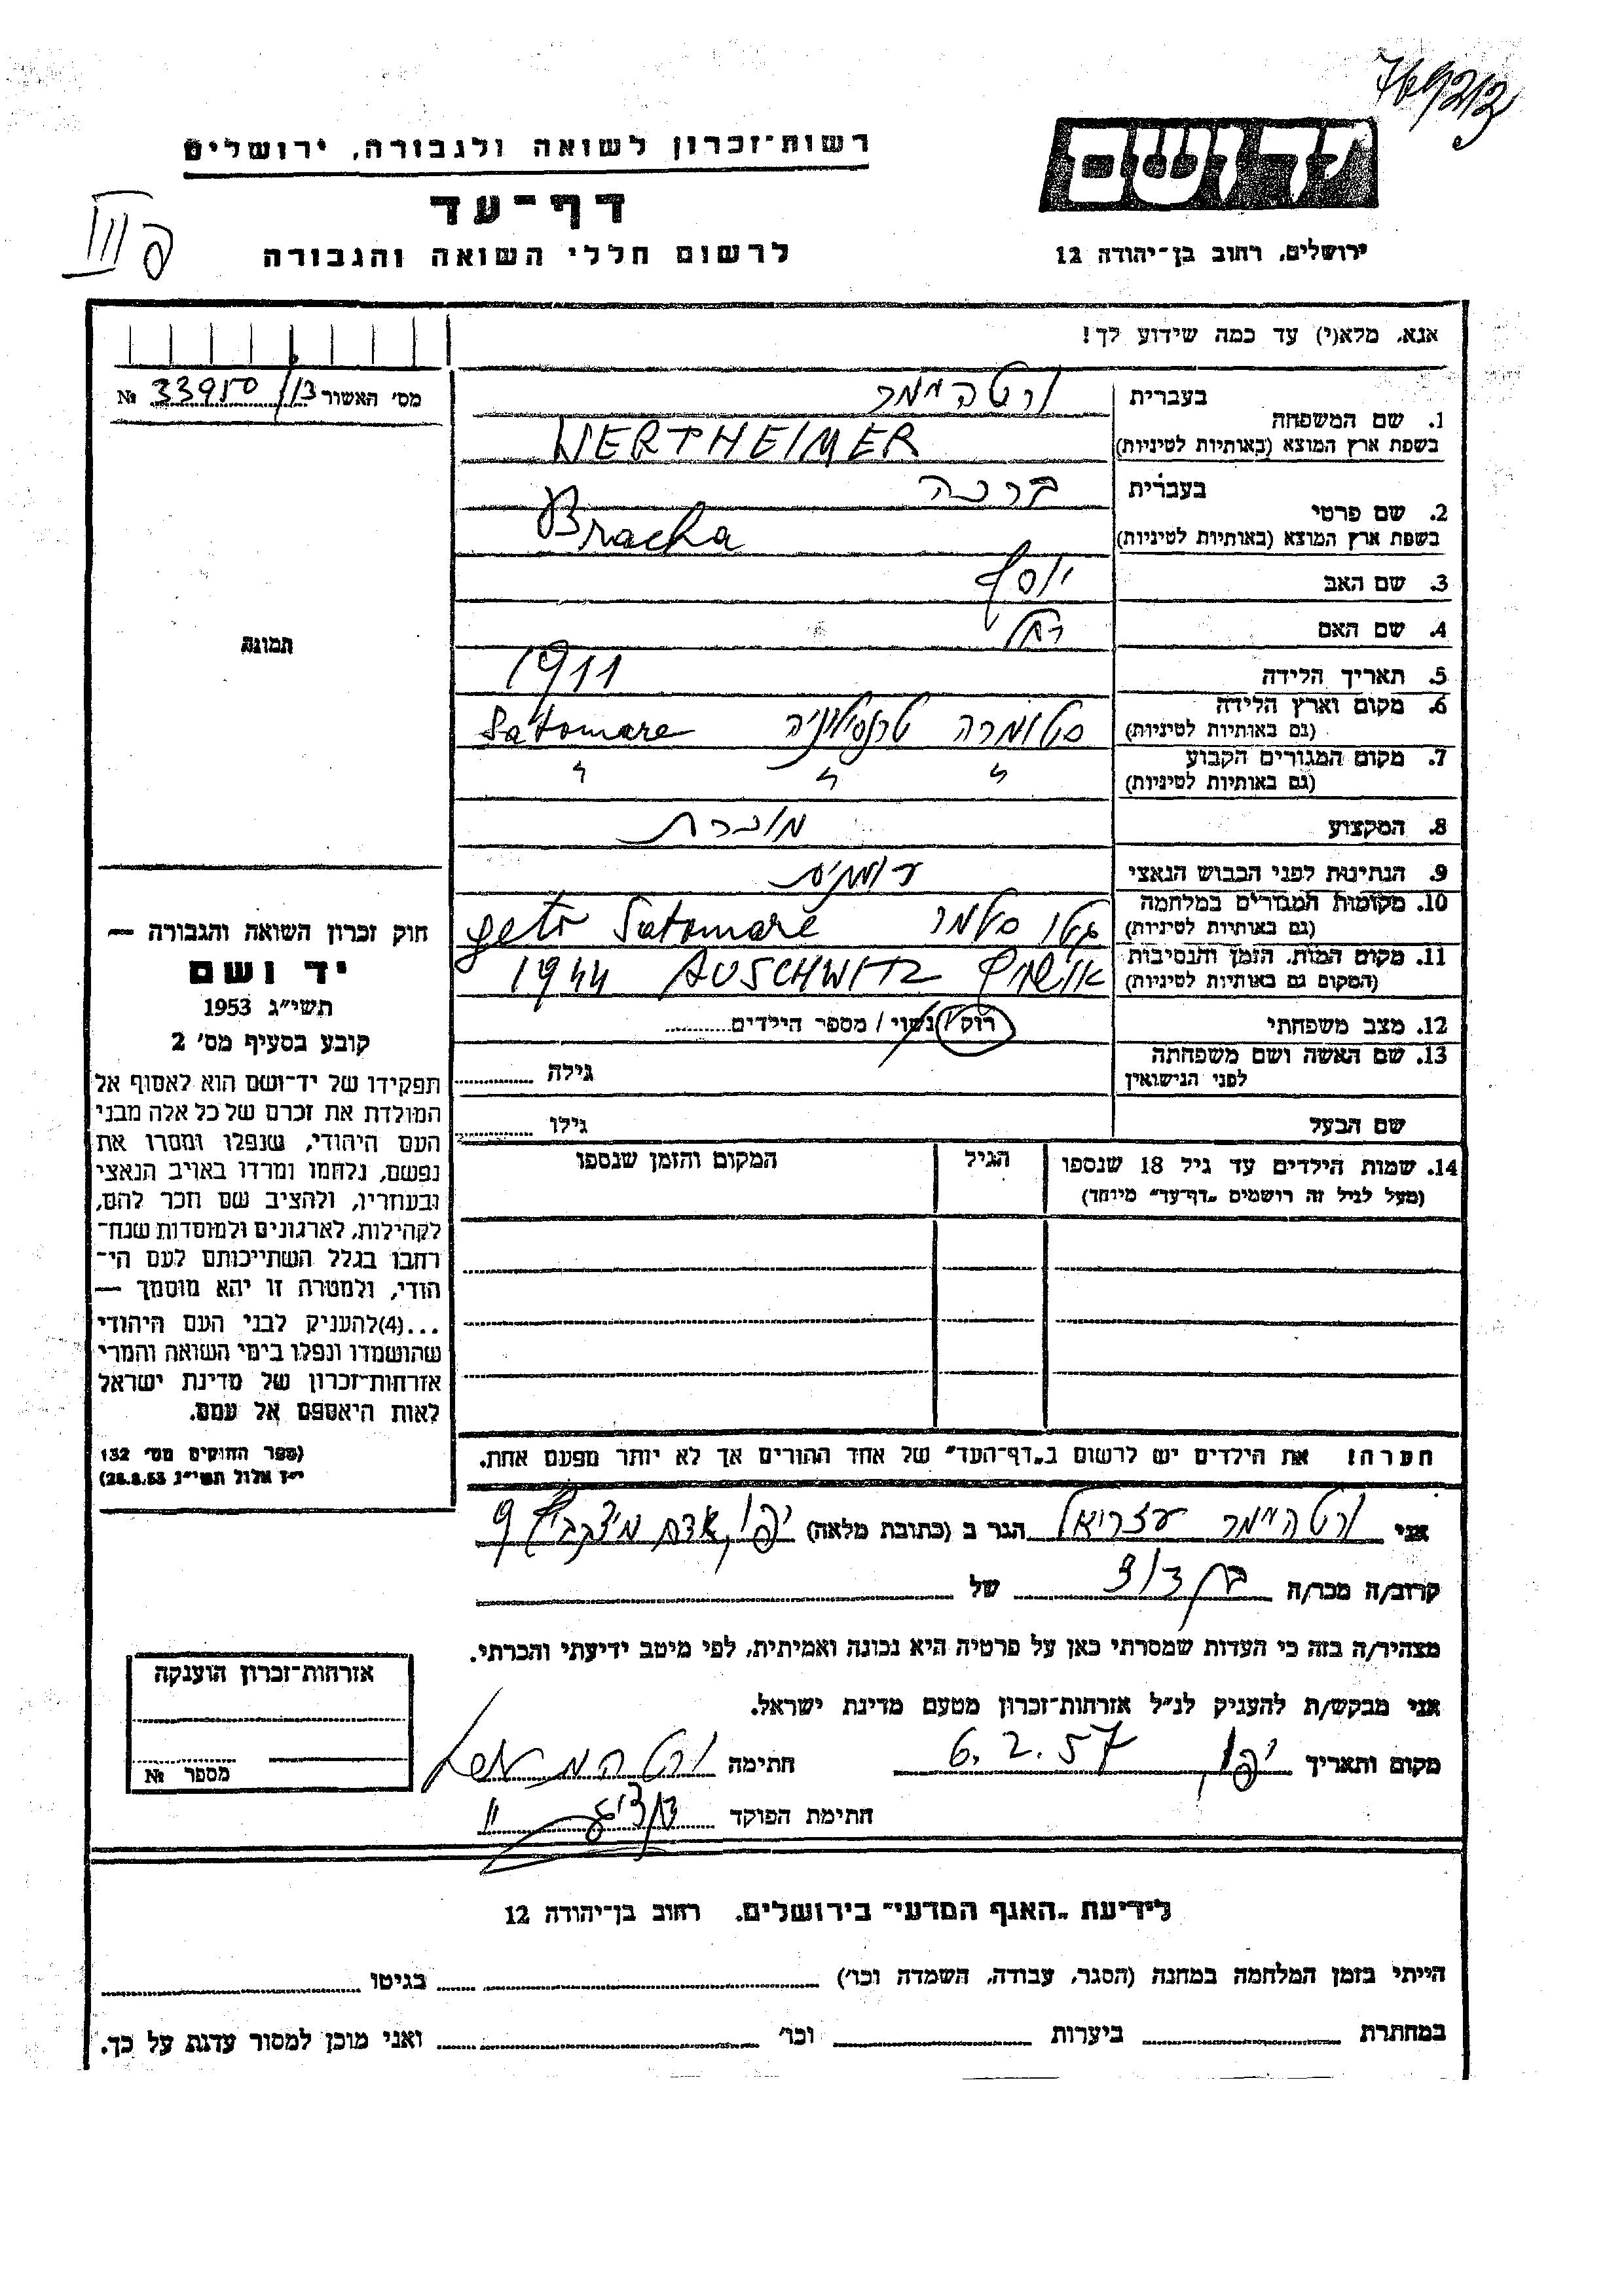 769212
רשות־זכרון לשואה ולגבורה, ירושלים
יד ושם
דף־עד
לרשום חללי השואה והגבורה
ירושלים, רחוב בן־יהודה 12
III
אנא, מלא(י) עד כמה שידוע לך!
מס' האשור 33950/13 №
תמונה
1. שם המשפחה
בעברית
ורטהיימר
בשפת ארץ המוצא (באותיות לטיניות)
WERTHEIMER
2. שם פרטי
בעברית
ברכה
בשפת ארץ המוצא (באותיות לטיניות)
Bracha
3. שם האב יוסף
4. שם האם רחל
5. תאריך הלידה 1911
6. מקום וארץ הלידה
(גם באותיות לטיניות)
סטומרה טרנסילווניה Satomare
7. מקום המגורים הקבוע
(גם באותיות לטיניות)
" " "
8. המקצוע מוכרת
9. הנתינות לפני הכבוש הנאצי
10. מקומות המגורים במלחמה
(גם באותיות לטיניות)
גטו סטמר geto Satomare
11. מקום המות, הזמן והנסיבות
(המקום גם באותיות לטיניות)
אושויץ AUSCHWITZ 1944
12. מצב משפחתי
רוק / נשוי / מספר הילדים
13. שם האשה ושם משפחתה
לפני הנישואין
גילה
שם הבעל
גילו
14. שמות הילדים עד גיל 18 שנספו
(מעל לגיל זה רושמים „דף־עד" מיוחד)
הגיל
המקום והזמן שנספו
חוק זכרון השואה והגבורה —
יד ושם
תשי״ג 1953
קובע בסעיף מס' 2
תפקידו של יד־ושם הוא לאסוף אל
המולדת את זכרם של כל אלה מבני
העם היהודי, שנפלו ומסרו את
נפשם, נלחמו ומרדו באויב הנאצי
ובעוזריו, ולהציב שם וזכר להם,
לקהילות, לארגונים ולמוסדות שנח־
רבו בגלל השתייכותם לעם הי־
הודי, ולמטרה זו יהא מוסמך —
...(4)להעניק לבני העם היהודי
שהושמדו ונפלו בימי השואה והמרי
אזרחות־זכרון של מדינת ישראל
לאות היאספם אל עמם.
(ספר החוקים מס' 132
י״ז אלול תשי״ג 28.8.53)
הערה! את הילדים יש לרשום ב„דף־העד" של אחד ההורים אך לא יותר מפעם אחת.
אני ורטהיימר עזריאל הגר ב (כתובת מלאה) יפו, אדם מיצקביץ 9
קרוב/ה מכר/ה בן דוד של
מצהיר/ה בזה כי העדות שמסרתי כאן על פרטיה היא נכונה ואמיתית, לפי מיטב ידיעתי והכרתי.
אני מבקש/ת להעניק לנ״ל אזרחות־זכרון מטעם מדינת ישראל.
מקום ותאריך יפו, 6.2.57 חתימה
חתימת הפוקד
אזרחות־זכרון הוענקה
מספר №
לידיעת „האגף המדעי" בירושלים, רחוב בן־יהודה 12
הייתי בזמן המלחמה במחנה (הסגר, עבודה, השמדה וכו') בגיטו
במחתרת ביערות וכו' ואני מוכן למסור עדות על כך.